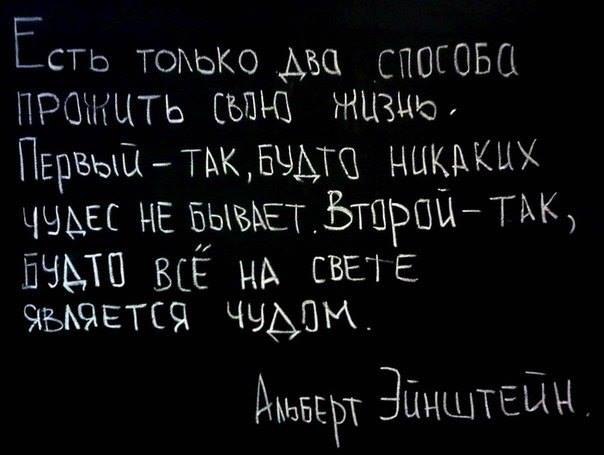 Есть только два способа
прожить свою жизнь.
Первый – так, будто никаких
чудес не бывает. Второй – так,
будто всё на свете
является чудом.
Альберт Эйнштейн.